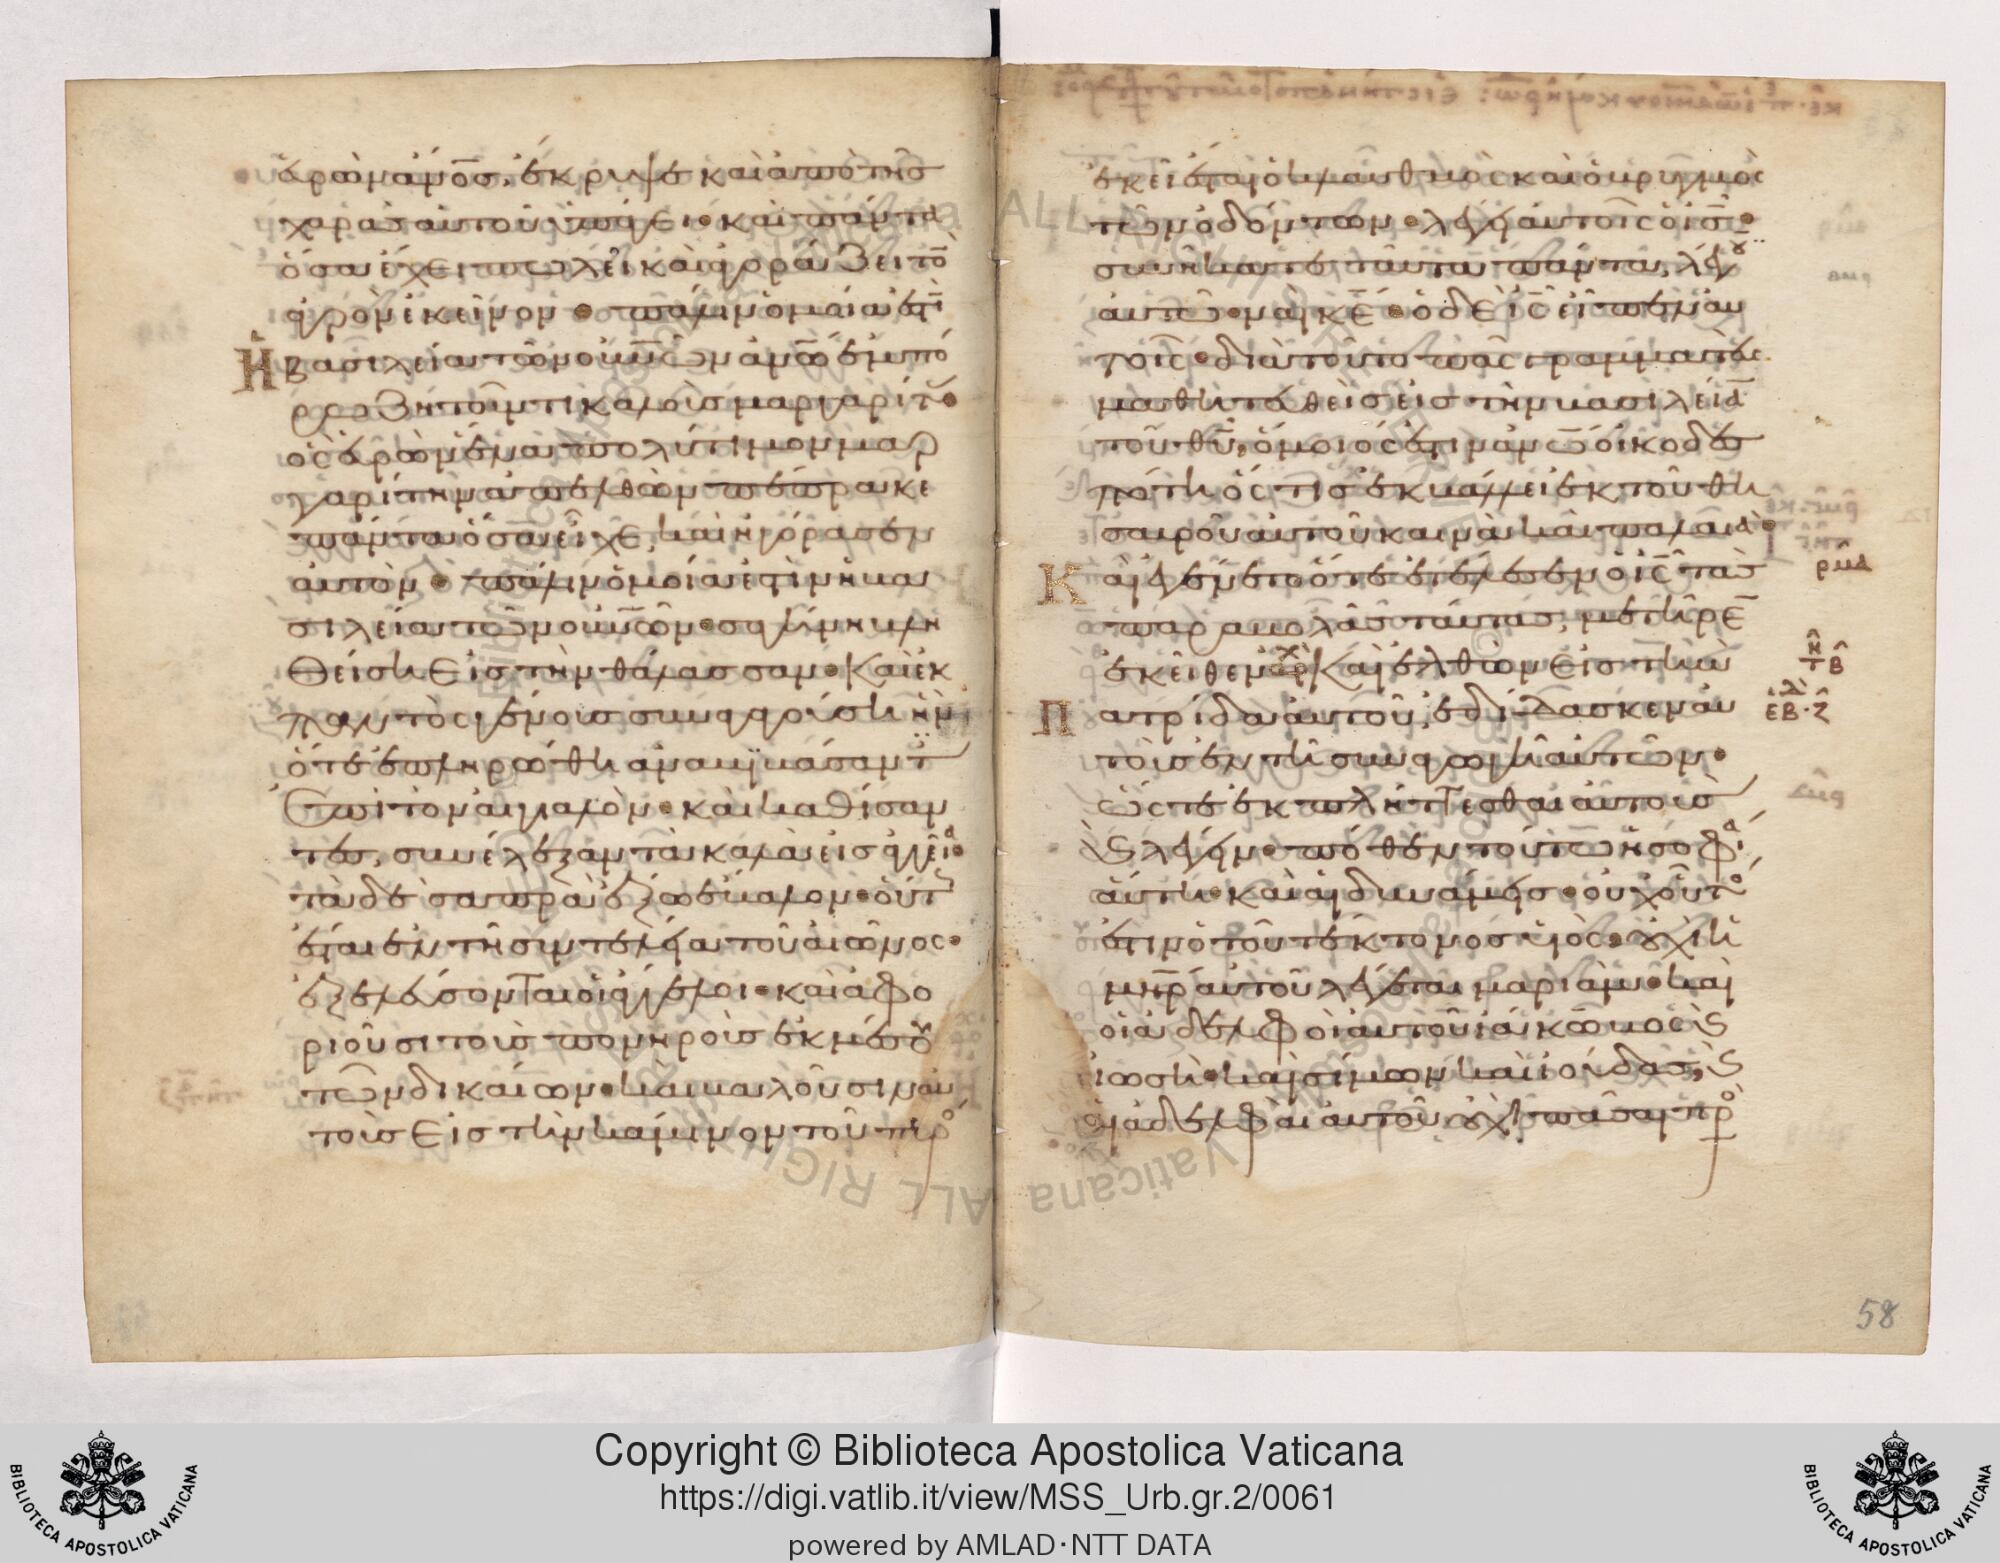 εὑρὼν ἄν̅ο̅σ̅, ἔκρυψε· καὶ ἀπὸ τῆς
χαρᾶς αὐτοῦ ὑπάγει· καὶ πάντα
ὅσα ἔχει πωλεῖ καὶ ἀγοράζει τὸ
ἀγρὸν ἐκεῖνον· πάλιν ὁμοία ἐστὶ
Ἡ βασιλεία τῶν οὐν̅ῶν ἀν̅ω̅ ἐμπό
ρω ζητοῦντι καλοὺς μαργαρίτ
ὃς εὑρὼν ἕνα πολύτιμον μαρ
γαρίτην ἀπελθὼν πέπρακε
πάντα ὅσα εἶχε, καὶ ἠγόρασεν
αὐτόν· πάλιν ὁμοία ἐστὶν ἡ βα
σιλεία τῶν οὐν̅ῶν· σαγήνη βλη
θείση εἰς τὴν θάλασσαν· καὶ ἐκ
παντὸς γένους συναγαγούση ἣν
ὅτε ἐπληρώθη ἀναβιβάσαντ
ἐπὶ τὸν αἰγιαλὸν· καὶ καθίσαν
τες, συνέλεξαν τὰ καλὰ εἰς ἀγγεῖα·
τὰ δὲ σαπρὰ ἔξω ἔβαλον· οὕτ
ἔσται ἐν τῆ συντελεία τοῦ αἰῶνος·
ἐξελεύσονται οἱ ἄγγελοι· καὶ ἀφο
ριοῦσι τοὺς πονηροὺς ἐκ μέσου
τῶν δικαίων· καὶ βαλοῦσιν αὐ
τοὺς εἰς τὴν κάμινον τοῦ πυρο
ἐκεῖ ἔσται ὁ κλαυθμὸς καὶ ὁ βρυγμὸς
τῶν ὀδόντων· λέγει αὐτοῖς ὁ ι̅ς̅·
συνήκατε ταῦτα πάντα, λέγου
αὐτῶ· ναὶ κ̅ε̅· ὁ δὲ ι̅ς̅ εἶπεν αὐ
τοῖς· διὰ τοῦτο πᾶς γραμματεὺς
μαθητευθεὶς εἰς τὴν βασιλεία
τοῦ θ̅υ̅, ὅμοιός ἐστιν ἀν̅ω̅ οἰκοδεσ
πότη ὅστις ἐκβάλλει ἐκ τοῦ θη
σαυροῦ αὐτοῦ καινὰ καὶ παλαιά·
Καὶ ἐγένετο ὅτε ἐτέλεσεν ὁ ι̅ς̅ τὰς
παραβολὰς ταύτας, μετῆρεν
ἐκεῖθεν· ἀρχ Καὶ ἐλθὼν εἰς τὴν
Πατρίδα αὐτοῦ, ἐδίδασκεν αὐ
τοὺς ἐν τῆ συναγωγῆ αὐτῶν·
ὥστε ἐκπλήττεσθαι αὐτοὺς
καὶ λέγειν· πόθεν τούτω ἡ σοφία
αὕτη· καὶ αἱ δυνάμεις· οὐχ οὗτο
ἐστιν ὁ τοῦ τέκτονος υἱός· οὐχὶ ἡ
μη̅ρ̅ αὐτοῦ λέγεται μαριὰμ· καὶ
οἱ ἀδελφοὶ αὐτοῦ ἰάκωβος καὶ
ἰωσὴ· καὶ σίμων καὶ ἰούδας, καὶ
αἱ ἀδελφαὶ αὐτοῦ οὐχὶ πᾶσαι προ
58
Copyright © Biblioteca Apostolica Vaticana
https://digi.vatlib.it/view/MSS_Urb.gr.2/0061
powered by AMLAD·NTT DATA
BIBLIOTECA APOSTOLICA VATICANA
BIBLIOTECA APOSTOLICA VATICANA